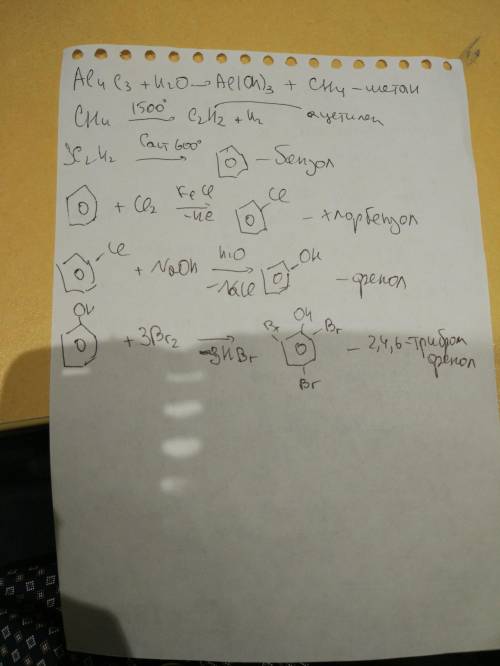 Al4C3 + H2O → Al(OH)3 + CH4 - метан
CH4 1500° → C2H2 + H2 ацетилен
3C2H2 Cакт 600° → - бензол
+ Cl2 -HCl → Cl - хлорбензол
Cl + NaOH H2O -NaCl → OH - фенол
OH + 3Br2 → -3HBr OH Br Br Br - 2,4,6-трибром фенол